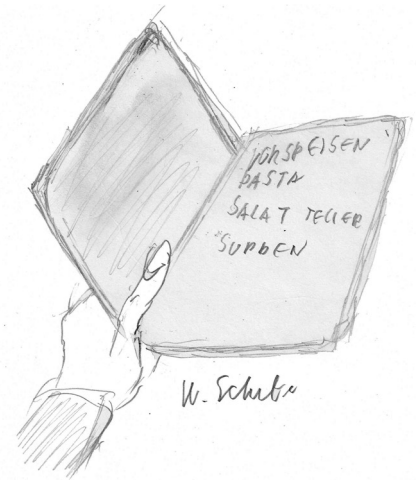 VORSPEISEN
PASTA
SALAT TELLER
SUPPEN